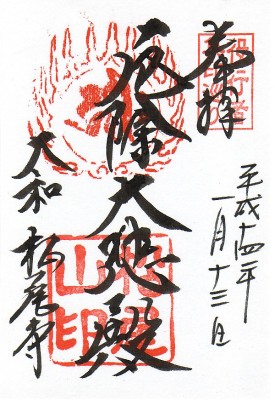 奉拝
平成十四年
一月十三日
厄除大悲殿
大和 松尾寺